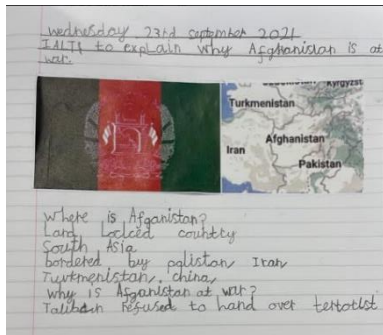 Wednesday 23rd september 2021
IALTI to explain why Afghanistan is at
war.
Kyrgyzst
Turkmenistan
Afghanistan
Iran
Pakistan
where is Afganistan?
Land Locked country
South Asia
bordered by pakistan, Iran
Turkmenistan, china,
why is Afganistan at war?
Taliban refused to hand over terrorist